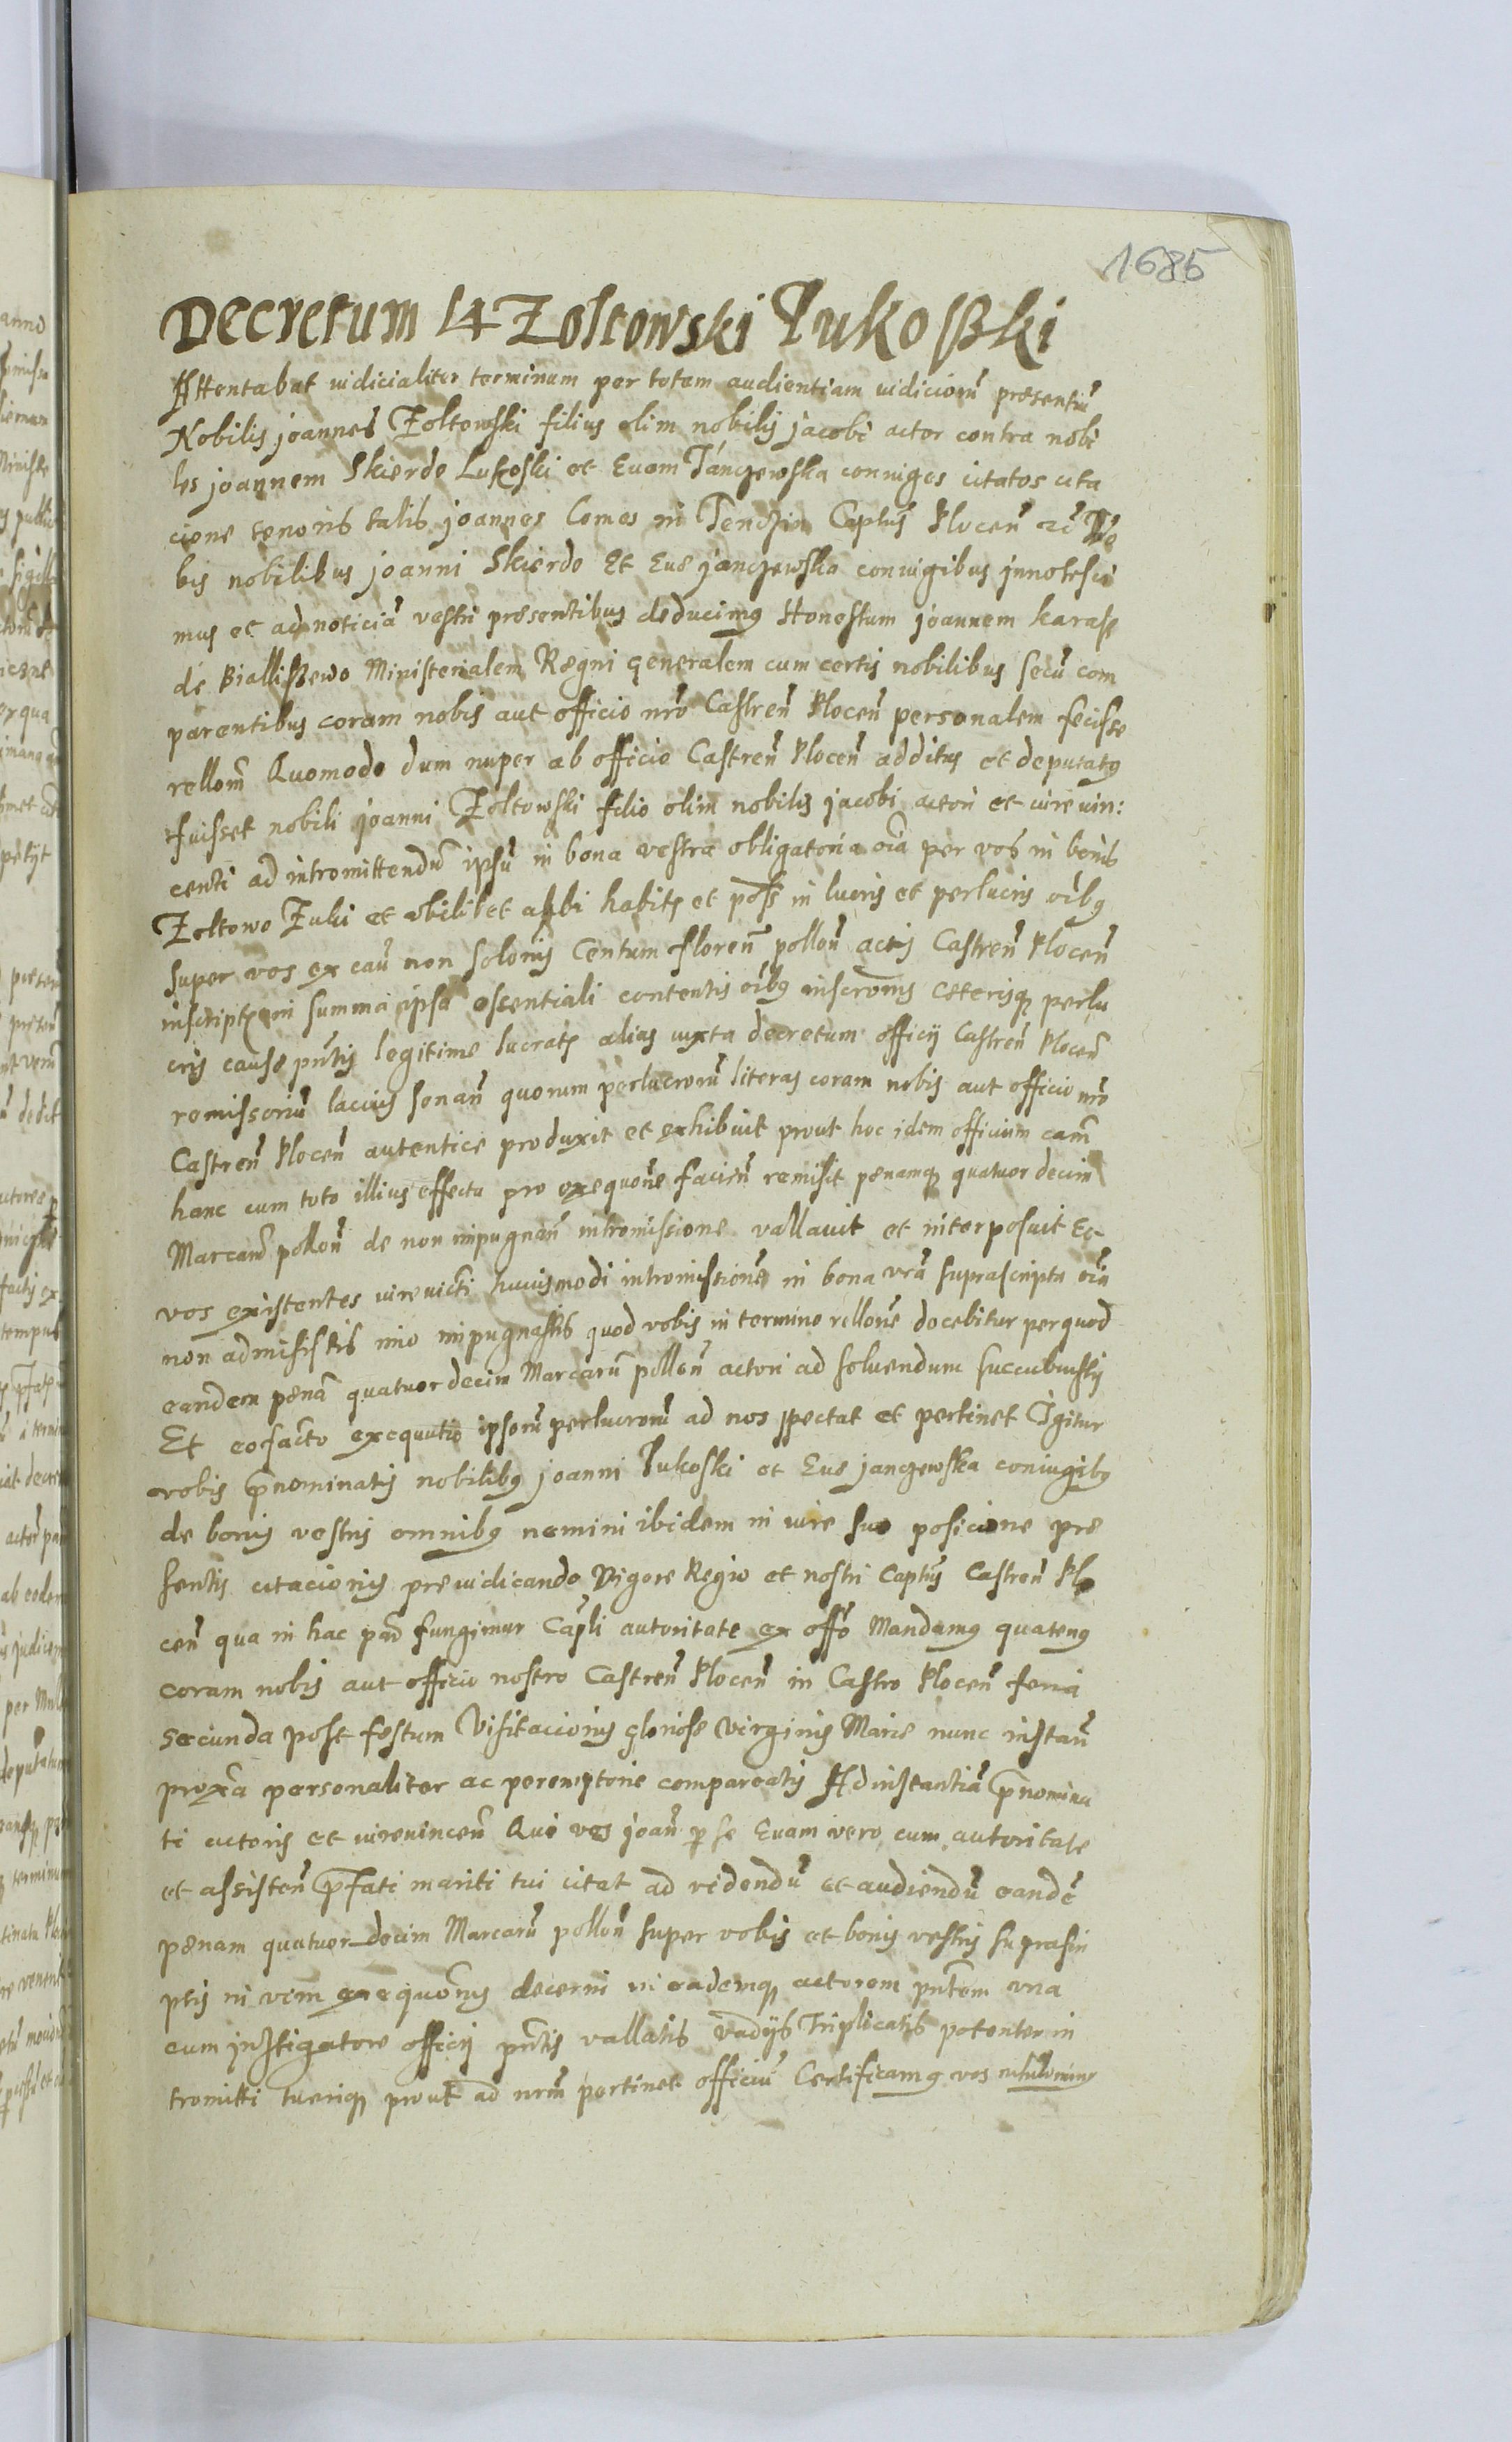 1685
Decretum 14 Zoltowski Łukoßki
Attentabat iudicialiter terminum per totam audientiam iudiciorũ presentiũ
Nobilis joannes Zoltowski filius olim nobilis jacobi actor contra nobi
les joannem Skierdo Lukoski et Evam Janczewska coniuges citatos cita
cione tenoris talis joannes Comes in Tenczin Captũs Plocen̄ zc̄ Vo
bis nobilibus joanni Skierdo Et Eve janczewska coniugibus jnnotesci
mus et ad noticiã vestri presentibus deducimꝰ Honestum joannem karaß
de Bialliszewo Ministerialem Regni generalem cum certis nobilibus secũ com
parentibus coram nobis aut officio nr̃o Castren̄ Plocen̄ personalem fecisse
rellom̄ Quomodo dum nuper ab officio Castren̄ Plocen̄ additus et deputatꝰ
fuisset nobili joanni Zoltowski filio olim nobilis jacobi actori et iure vin:
centi ad intromittendũ ipsũ in bona vestra obligatoria oĩa per vos in bonis
Zoltowo Zuki et vbilibet alibi habitꝭ et poss̃ in lucris et perlucris oĩbꝰ
super vos ex cau͂ non solonis Centum floren̄ pollon̄ actis Castren̄ Plocen̄
inscriptꝭ in summa ipsa essentiali contentis oĩbꝰ inscronis Ceterisqꝫ perlu
cris cause pn̄tis legitime lucratꝭ alias iuxta decretum officij Castren̄ Plocen̄
remissoriũ lacius sonan̄ quorum perlucrorũ literas coram nobis aut officio nr̃o
Castren̄ Plocen̄ autentice produxit et exhibuit prout hoc idem officium cam̄
hanc cum toto illius effectu pro exequone facien̄ remisit penamqꝫ quatuor decim
Marcarũ pollon̄ de non impugnan̄ intromissione vallavit et interposuit Et
vos existentes iure victi huiusmodi intromissione in bona vr̃a suprascripta oĩa
non admisistis imo impugnastis quod vobis in termino rellone docebitur per quod
eandem penã quatuor decim Marcarũ pollon̄ actori ad soluendum succubuistis
Et eo facto exequutio ipsorũ perlucrorũ ad nos spectat et pertinet Igitur
vobis p̄nominatis nobilibꝰ joanni Lukoski et Eve janczewska coniugibꝰ
de bonis vestris omnibꝰ nemini ibidem in iure suo posicione pre
sentis citacionis preiudicando Vigore Regio et nostri Captũs Castren̄ Plo
cen̄ qua in hac par̄ fungimur Cap̃li autoritate ex offõ Mandamꝰ quatenꝰ
coram nobis aut officio nostro Castren̄ Plocen̄ in Castro Plocen̄ feria
secunda post festum Visitacionis gloriose Virginis Marie nunc instan̄
prox̃a personaliter ac peremptorie compareatis Ad instantiã p̄nomina
ti actoris et iurevincen̄ Qui vos joan̄ p se Evam vero cum autoritate
et assisten̄ p̄fati mariti tui citat ad videndũ et audiendũ eandẽ
penam quatuor decim Marcarũ pollon̄ super vobis et bonis vestris suprascri
ptis in vim exequonis decerni in eademqꝫ actorem pn̄tem vna
cum jnstigatore officij pn̄tis vallatis vadijs Triplicatis potenter in
tromitti tueriqꝫ prout ad nr̃m pertinet officiũ Certificamꝰ vos